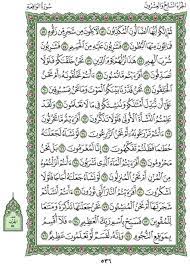 الجزء السابع والعشرون سورة الواقعة
ثُمَّ إِنَّكُمْ أَيُّهَا الضَّالُّونَ الْمُكَذِّبُونَ ٥١ لَآكِلُونَ مِن شَجَرٍ مِّن زَقُّومٍ ٥٢
فَمَالِئُونَ مِنْهَا الْبُطُونَ ٥٣ فَشَارِبُونَ عَلَيْهِ مِنَ الْحَمِيمِ ٥٤ فَشَارِبُونَ
شُرْبَ الْهِيمِ ٥٥ هَٰذَا نُزُلُهُمْ يَوْمَ الدِّينِ ٥٦ نَحْنُ خَلَقْنَاكُمْ فَلَوْلَا
تُصَدِّقُونَ ٥٧ أَفَرَأَيْتُم مَّا تُمْنُونَ ٥٨ أَأَنتُمْ تَخْلُقُونَهُ أَمْ نَحْنُ
الْخَالِقُونَ ٥٩ نَحْنُ قَدَّرْنَا بَيْنَكُمُ الْمَوْتَ وَمَا نَحْنُ بِمَسْبُوقِينَ ٦٠
عَلَىٰ أَن نُّبَدِّلَ أَمْثَالَكُمْ وَنُنشِئَكُمْ فِي مَا لَا تَعْلَمُونَ ٦١ وَلَقَدْ
عَلِمْتُمُ النَّشْأَةَ الْأُولَىٰ فَلَوْلَا تَذَكَّرُونَ ٦٢ أَفَرَأَيْتُم مَّا تَحْرُثُونَ ٦٣
أَأَنتُمْ تَزْرَعُونَهُ أَمْ نَحْنُ الزَّارِعُونَ ٦٤ لَوْ نَشَاءُ لَجَعَلْنَاهُ حُطَامًا
فَظَلْتُمْ تَفَكَّهُونَ ٦٥ إِنَّا لَمُغْرَمُونَ ٦٦ بَلْ نَحْنُ
مَحْرُومُونَ ٦٧ أَفَرَأَيْتُمُ الْمَاءَ الَّذِي تَشْرَبُونَ ٦٨ أَأَنتُمْ أَنزَلْتُمُوهُ
مِنَ الْمُزْنِ أَمْ نَحْنُ الْمُنزِلُونَ ٦٩ لَوْ نَشَاءُ جَعَلْنَاهُ أُجَاجًا فَلَوْلَا
تَشْكُرُونَ ٧٠ أَفَرَأَيْتُمُ النَّارَ الَّتِي تُورُونَ ٧١ أَأَنتُمْ أَنشَأْتُمْ
شَجَرَتَهَا أَمْ نَحْنُ الْمُنشِئُونَ ٧٢ نَحْنُ جَعَلْنَاهَا تَذْكِرَةً وَمَتَاعًا
لِّلْمُقْوِينَ ٧٣ فَسَبِّحْ بِاسْمِ رَبِّكَ الْعَظِيمِ ٧٤ فَلَا أُقْسِمُ
بِمَوَاقِعِ النُّجُومِ ٧٥ وَإِنَّهُ لَقَسَمٌ لَّوْ تَعْلَمُونَ عَظِيمٌ ٧٦
٥٣٦